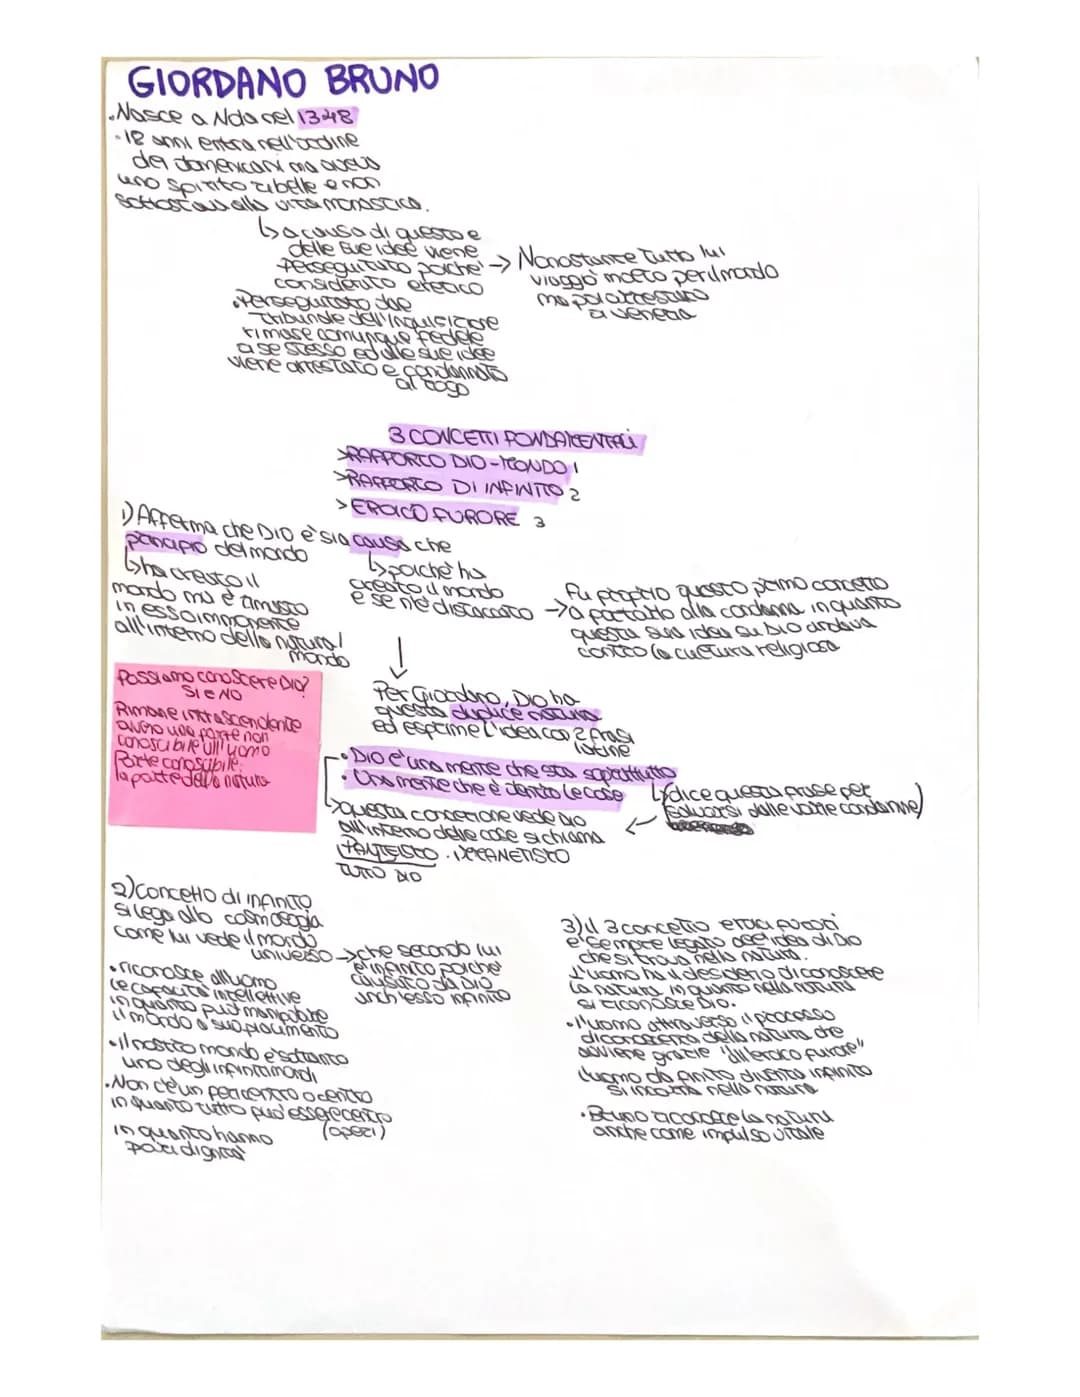 GIORDANO BRUNO
•Nasce a Nola nel 1348
-18 anni entra nell'ordine
dei domenicani ma aveva
uno spirito ribelle e non
sottostava alla vita monastica.
↳a causa di questo e
delle sue idee viene
perseguitato poiché
considerato eretico
→ Nonostante tutto lui
viaggiò molto per il mondo
ma poi arrestato
a venezia
•Perseguitato dal
tribunale dell'inquisizione
rimase comunque fedele
a se stesso ed alle sue idee
viene arrestato e condannato
al rogo
3 CONCETTI FONDAMENTALI
>RAPPORTO DIO-MONDO 1
>RAPPORTO DI INFINITO 2
>EROICO FURORE 3
1) Afferma che DIO è sia causa che
principio del mondo
↳ha creato il
mondo ma è rimasto
in esso immanente
all'interno della natura/
mondo
↳poiché ha
creato il mondo
e se n'è distaccato
→Fu proprio questo primo concetto
a portarlo alla condanna in quanto
questa sua idea su DIO andava
contro la cultura religiosa
↓
Possiamo conoscere Dio?
SI e NO
Rimane
ovvero una parte non
conoscibile all'uomo
Parte conoscibile:
la parte della natura
Per Giordano, Dio ha
questa duplice natura
ed esprime l'idea con 2 frasi
latine
•Dio è una mente che sta soprattutto
•Una mente che è dentro le cose
↳(dice questa frase per
salvarsi dalle varie condanne)
↳questa concezione vede DIO
all'interno delle cose si chiama
PANTEISMO
TUTTO DIO
2) concetto di infinito
si lega alla cosmologia
come lui vede il mondo
universo
→che secondo lui
è infinito poiché
causato da DIO
anch'esso infinito
•riconosce all'uomo
le capacità intellettive
in quanto può manipolare
il mondo a suo piacimento
•il nostro mondo è soltanto
uno degli infiniti mondi
•Non c'è un centro
in quanto tutto può essere centro
(aperi)
in quanto hanno
pari dignità
3) il 3 concetto eroici furori
è sempre legato all'idea di Dio
che si trova nella natura.
L'uomo ha il desiderio di conoscere
la natura in quanto nella natura
si riconosce Dio.
•l'uomo attraverso il processo
di conoscenza della natura che
avviene grazie "all'eroico furore"
l'uomo da finito diventa infinito
si incontra nella natura
•Bruno riconosce la natura
anche come impulso vitale